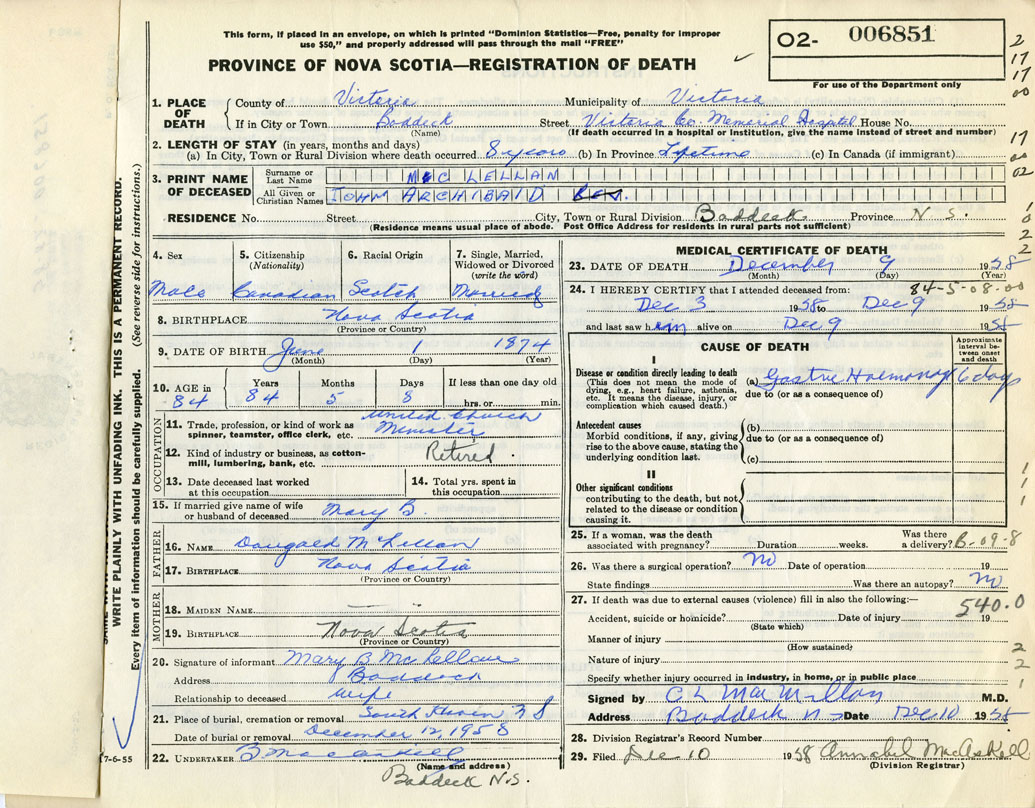 This form, if placed in an envelope, on which is printed "Dominion Statistics—Free, penalty for improper
use $50," and properly addressed will pass through the mail "FREE"
PROVINCE OF NOVA SCOTIA—REGISTRATION OF DEATH
02- 006851
For use of the Department only
1. PLACE OF DEATH
County of Victoria Municipality of Victoria
If in City or Town Baddeck Street Victoria Co. Memorial Hospital House No.
(Name) (If death occurred in a hospital or institution, give the name instead of street and number)
2. LENGTH OF STAY (in years, months and days)
(a) In City, Town or Rural Division where death occurred 8 years (b) In Province Lifetime (c) In Canada (if immigrant)
3. PRINT NAME OF DECEASED
Surname or Last Name McLELLAN
All Given or Christian Names JOHN ARCHIBALD Rev.
RESIDENCE No. Street City, Town or Rural Division Baddeck Province N. S.
(Residence means usual place of abode. Post Office Address for residents in rural parts not sufficient)
4. Sex 5. Citizenship (Nationality) 6. Racial Origin 7. Single, Married, Widowed or Divorced (write the word)
Male Canadian Scotch Married
8. BIRTHPLACE Nova Scotia
(Province or Country)
9. DATE OF BIRTH June 1 1874
(Month) (Day) (Year)
10. AGE in 84 Years 84 Months 5 Days 8 If less than one day old hrs. or min.
OCCUPATION
11. Trade, profession, or kind of work as spinner, teamster, office clerk, etc. United Church Minister
12. Kind of industry or business, as cotton-mill, lumbering, bank, etc. Retired
13. Date deceased last worked at this occupation
14. Total yrs. spent in this occupation
15. If married give name of wife or husband of deceased Mary B.
FATHER
16. NAME Dougald McLellan
17. BIRTHPLACE Nova Scotia
(Province or Country)
MOTHER
18. MAIDEN NAME —
19. BIRTHPLACE Nova Scotia
(Province or Country)
20. Signature of informant Mary B McLellan
Address Baddeck
Relationship to deceased wife
21. Place of burial, cremation or removal South Haven N S
Date of burial or removal December 12, 1958
22. UNDERTAKER B MacAskill
(Name and address)
Baddeck N.S.
MEDICAL CERTIFICATE OF DEATH
23. DATE OF DEATH December 9 1958
(Month) (Day) (Year)
24. I HEREBY CERTIFY that I attended deceased from: 84-5-08.00
Dec 3 1958 to Dec 9 1958
and last saw him alive on Dec 9 1958
CAUSE OF DEATH
Approximate interval between onset and death
I
Disease or condition directly leading to death
(This does not mean the mode of dying, e.g., heart failure, asthenia, etc. It means the disease, injury, or complication which caused death.)
(a) Gastric Haemorrhage 6 days
due to (or as a consequence of)
Antecedent causes
Morbid conditions, if any, giving rise to the above cause, stating the underlying condition last.
(b)
due to (or as a consequence of)
(c)
II
Other significant conditions
contributing to the death, but not related to the disease or condition causing it.
25. If a woman, was the death associated with pregnancy? Duration weeks. Was there a delivery? B-09-8
26. Was there a surgical operation? No Date of operation 19
State findings Was there an autopsy? No
27. If death was due to external causes (violence) fill in also the following:— 540.0
Accident, suicide or homicide? Date of injury 19
(State which)
Manner of injury
(How sustained)
Nature of injury
Specify whether injury occurred in industry, in home, or in public place
Signed by C L MacMillan M.D.
Address Baddeck N S Date Dec 10 1958
28. Division Registrar's Record Number
29. Filed Dec 10 1958 Annabel MacAskill
(Division Registrar)
WRITE PLAINLY WITH UNFADING INK. THIS IS A PERMANENT RECORD.
Every item of information should be carefully supplied. (See reverse side for instructions.)
7-6-55
2
17
17
00
17
02
1
0
2
2
1
1
1
2
2
1